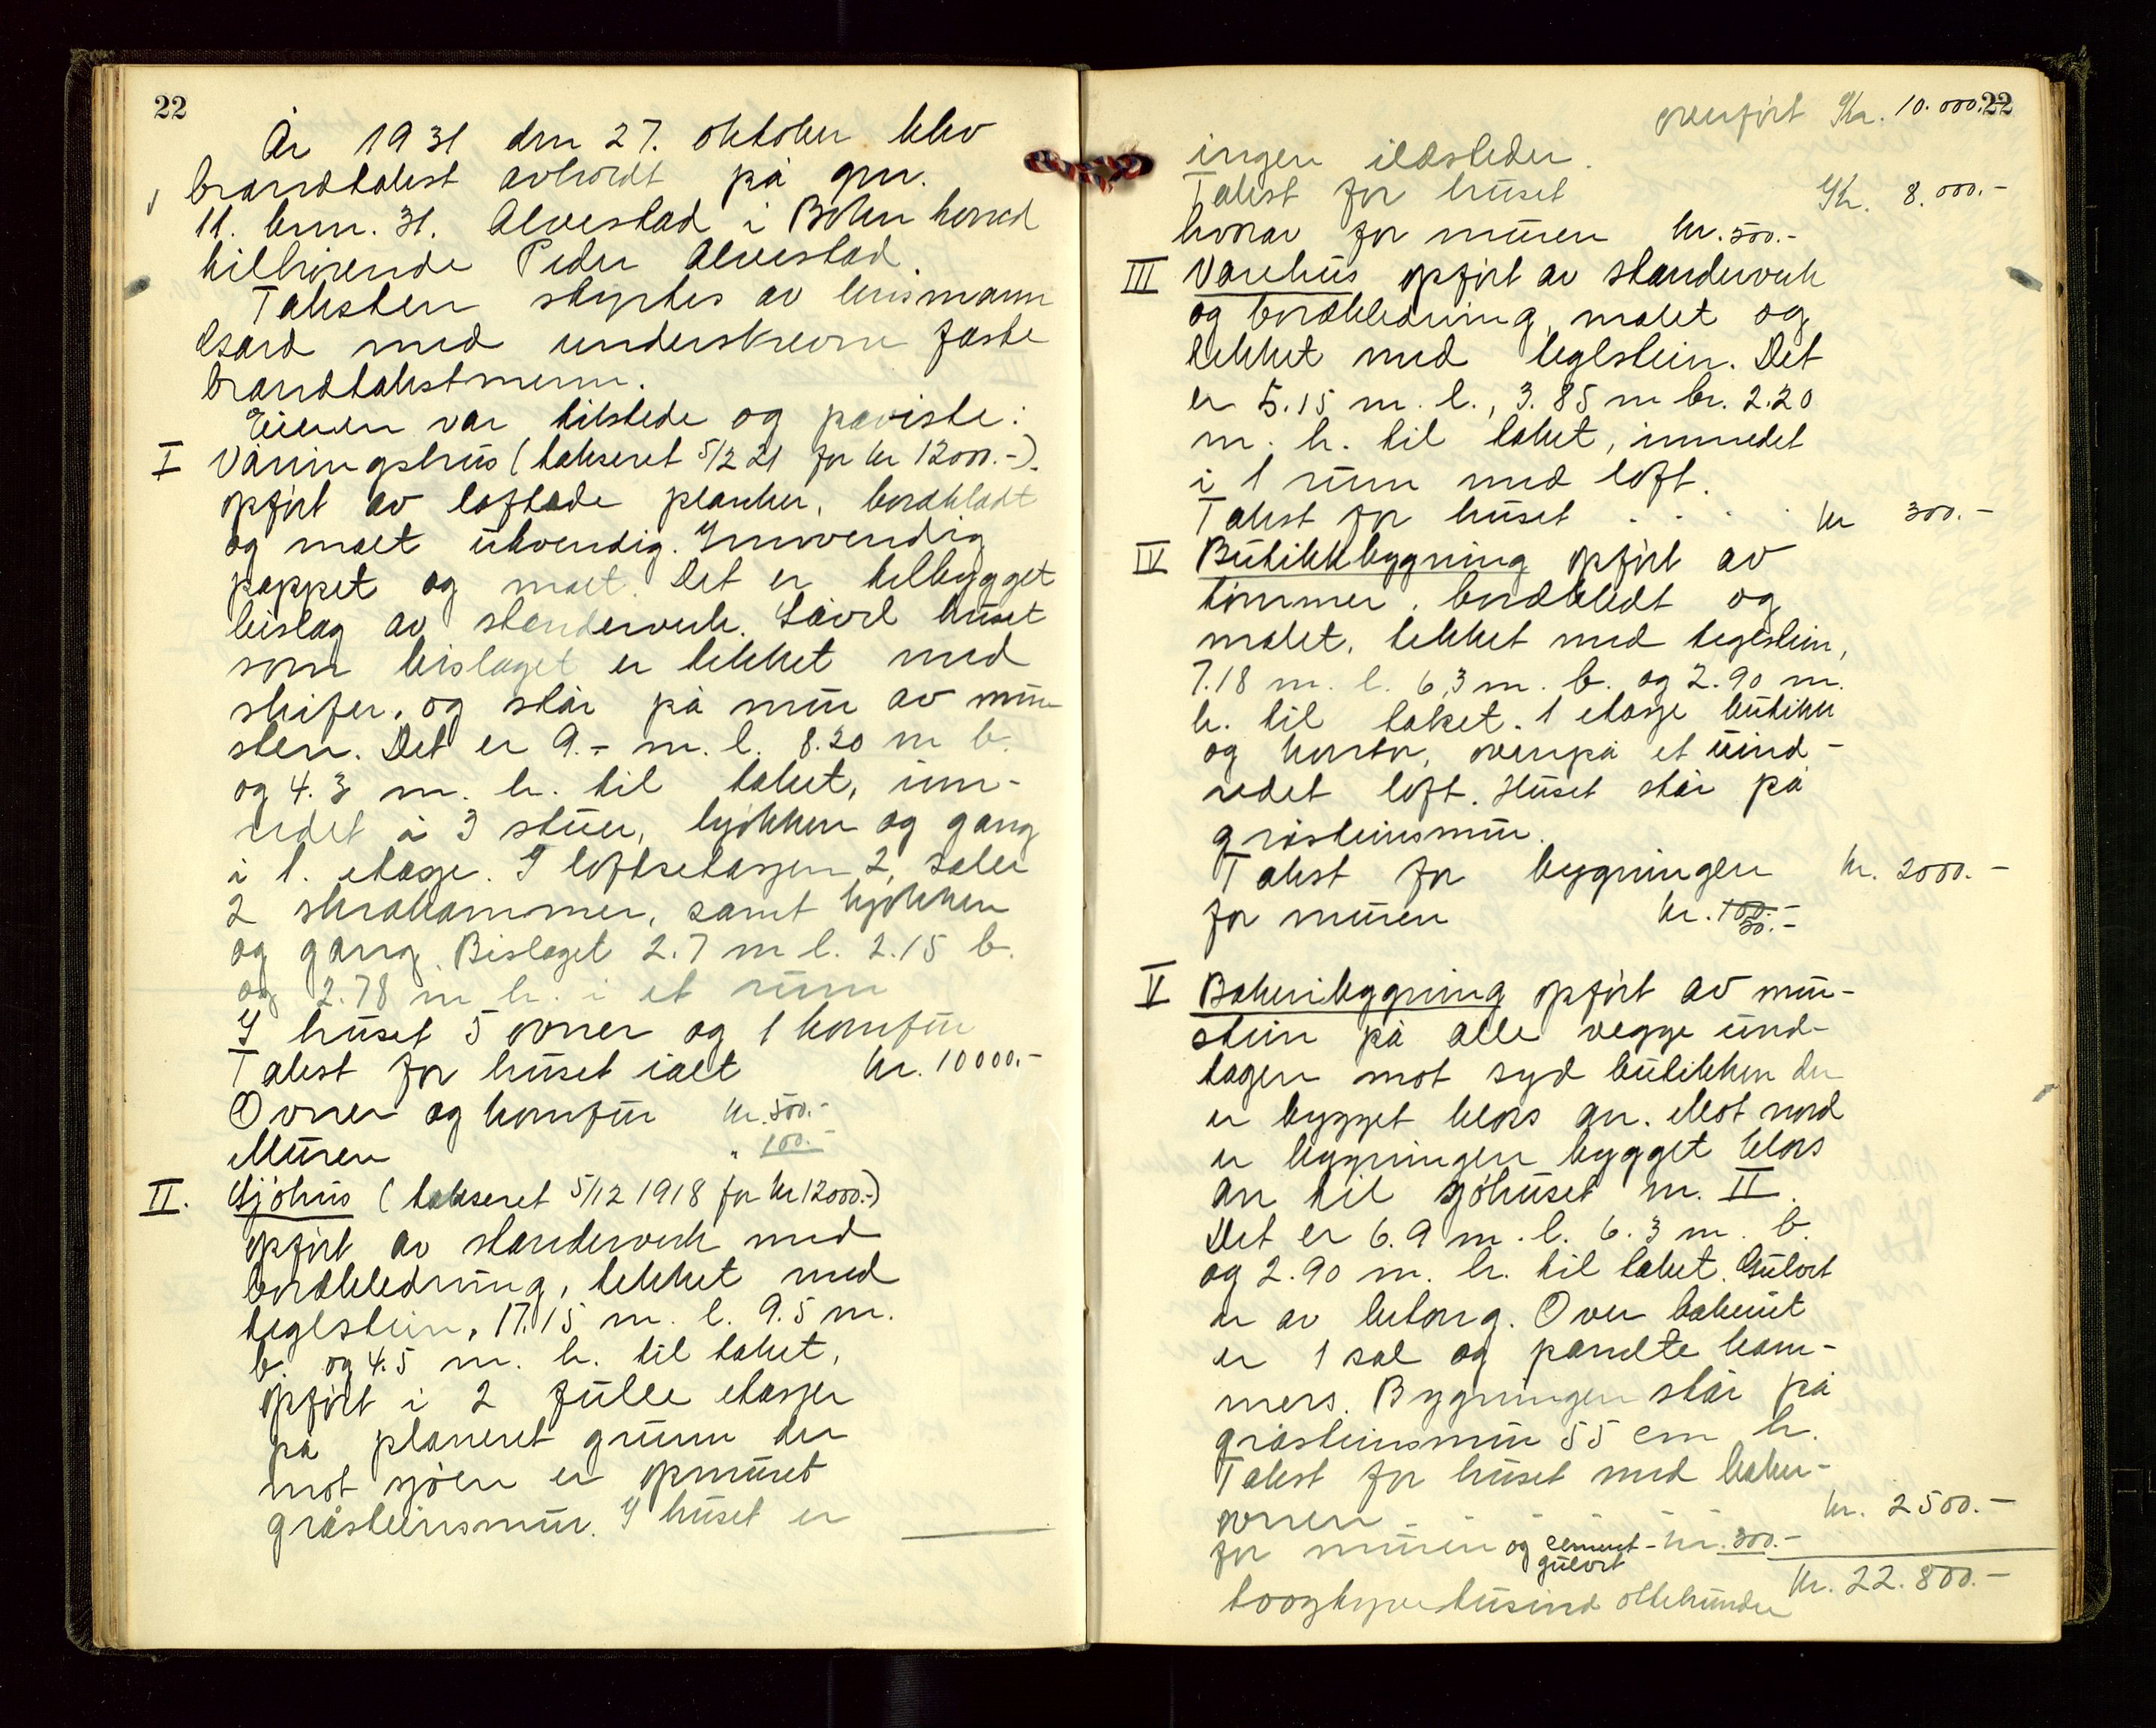 22
År 1931 den 27. oktober blev
brandtakst avholdt på gnr.
11. bnr. 31. Alvestad i Bokn herred
tilhørende Peder Alvestad.
Taksten styrtes av lensmann
med underskrevne faste
brandtakstmenn.
Eieren var tilstede og påviste:
I Våningshus (takseret 5/2 21 for kr 12000.-).
opført av laftede planker, bordklædt
og malt utvendig. Innvendig
pappet og malt. Det er tilbygget
bislag av stenderverk. Såvel huset
som bislaget er tekket med
skifer, og står på mur av mur-
sten. Det er 9.- m. l. 8.20 m b.
og 4.3 m. h. til taket, inn-
redet i 3 stuer, kjøkken og gang
i 1. etasje. I loftsetasjen 2 saler
2 skråkammer, samt kjøkken
og gang. Bislaget 2.7 m l. 2.15 b.
og 2.78 m h. i et rum
I huset 5 ovner og 1 komfur
Takst for huset ialt kr. 10000.-
Ovner og komfur kr. 500.-
Muren " 100.-
II. Sjöhus (takseret 5/12 1918 for kr 12000.-)
opført av stenderverk med
bordkledning, tekket med
teglstein, 17.15 m. l. 9.5 m.
b. og 4.5 m. h. til taket,
opført i 2 fulle etasjer
på planeret grunn der
mot sjöen er opmuret
gråsteinsmur. I huset er
overfört Kr. 10.000.- 22
ingen ildsteder.
Takst for huset Kr. 8.000.-
hvorav for muren kr. 500.-
III Varehus opført av stenderverk
og bordkledning, malet og
tekket med teglstein. Det
er 5.15 m. l., 3.85 m br. 2.20
m. h. til taket, innredet
i 1 rum med loft.
Takst for huset . . . . kr 300.-
IV Butikkbygning opført av
tömmer, bordkledt og
malet, tekket med teglstein,
7.18 m. l. 6,3 m. b. og 2.90 m.
h. til taket. 1 etasje butikk
og kontor, ovenpå et uind-
redet loft. Huset står på
gråsteinsmur.
Takst for bygningen kr. 2000.-
for muren kr. 100.- 50.-
V Bakeribygning opført av mur-
stein på alle vegge und-
tagen mot syd butikken der
er bygget klos an. Mot nord
er bygningen bygget klos
an til sjöhuset nr. II.
Det er 6.9 m. l. 6.3 m. b.
og 2.90 m. h. til taket. Gulvet
er av betong. Over bakeriet
er 1 sal og panelte kam-
mers. Bygningen står på
gråsteinsmur 55 cm h.
Takst for huset med baker-
ovnen kr. 2500.-
for muren og cement- kr. 300.-
gulvet
kr. 22.800.-
toogtyvetusind ottehundre